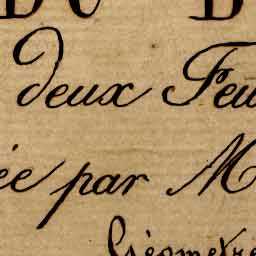 DU B
deux Feu
ée par M
Géometre